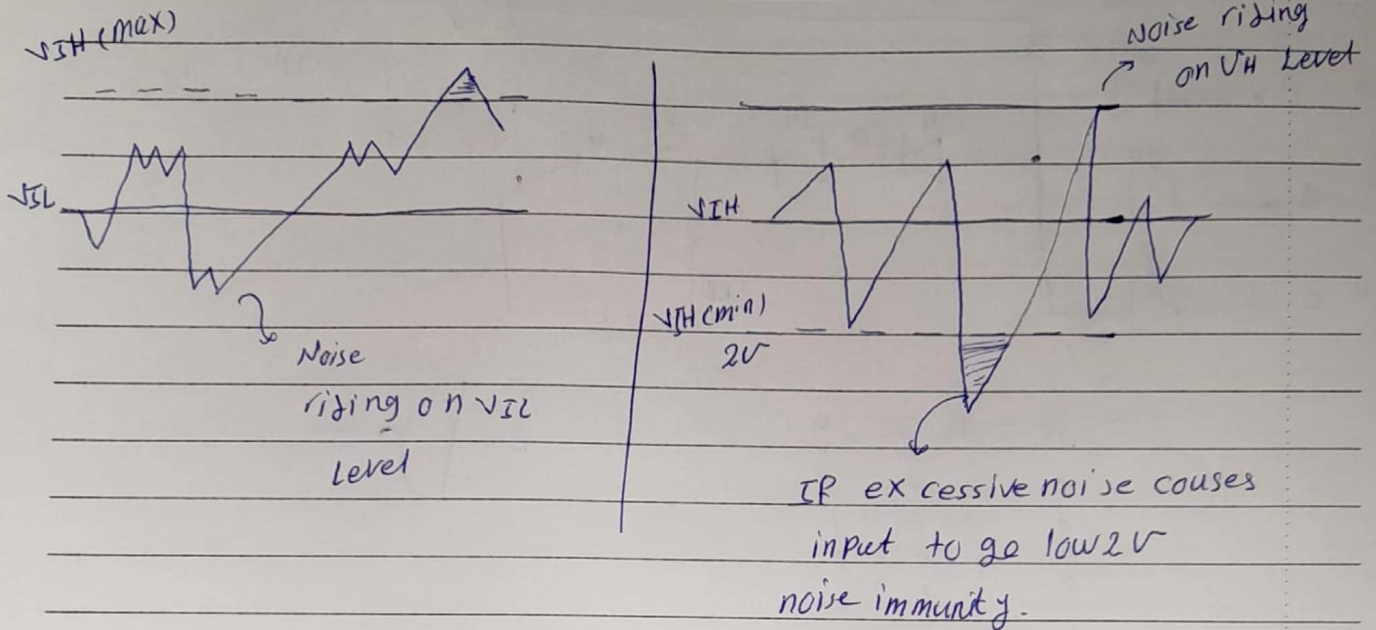 VIH (max)
VIL
Noise
riding on VIL
Level
Noise riding
on VH Level
VIH
VIH (min)
2V
IF ex cessive noise couses
input to go low 2V
noise immunity.